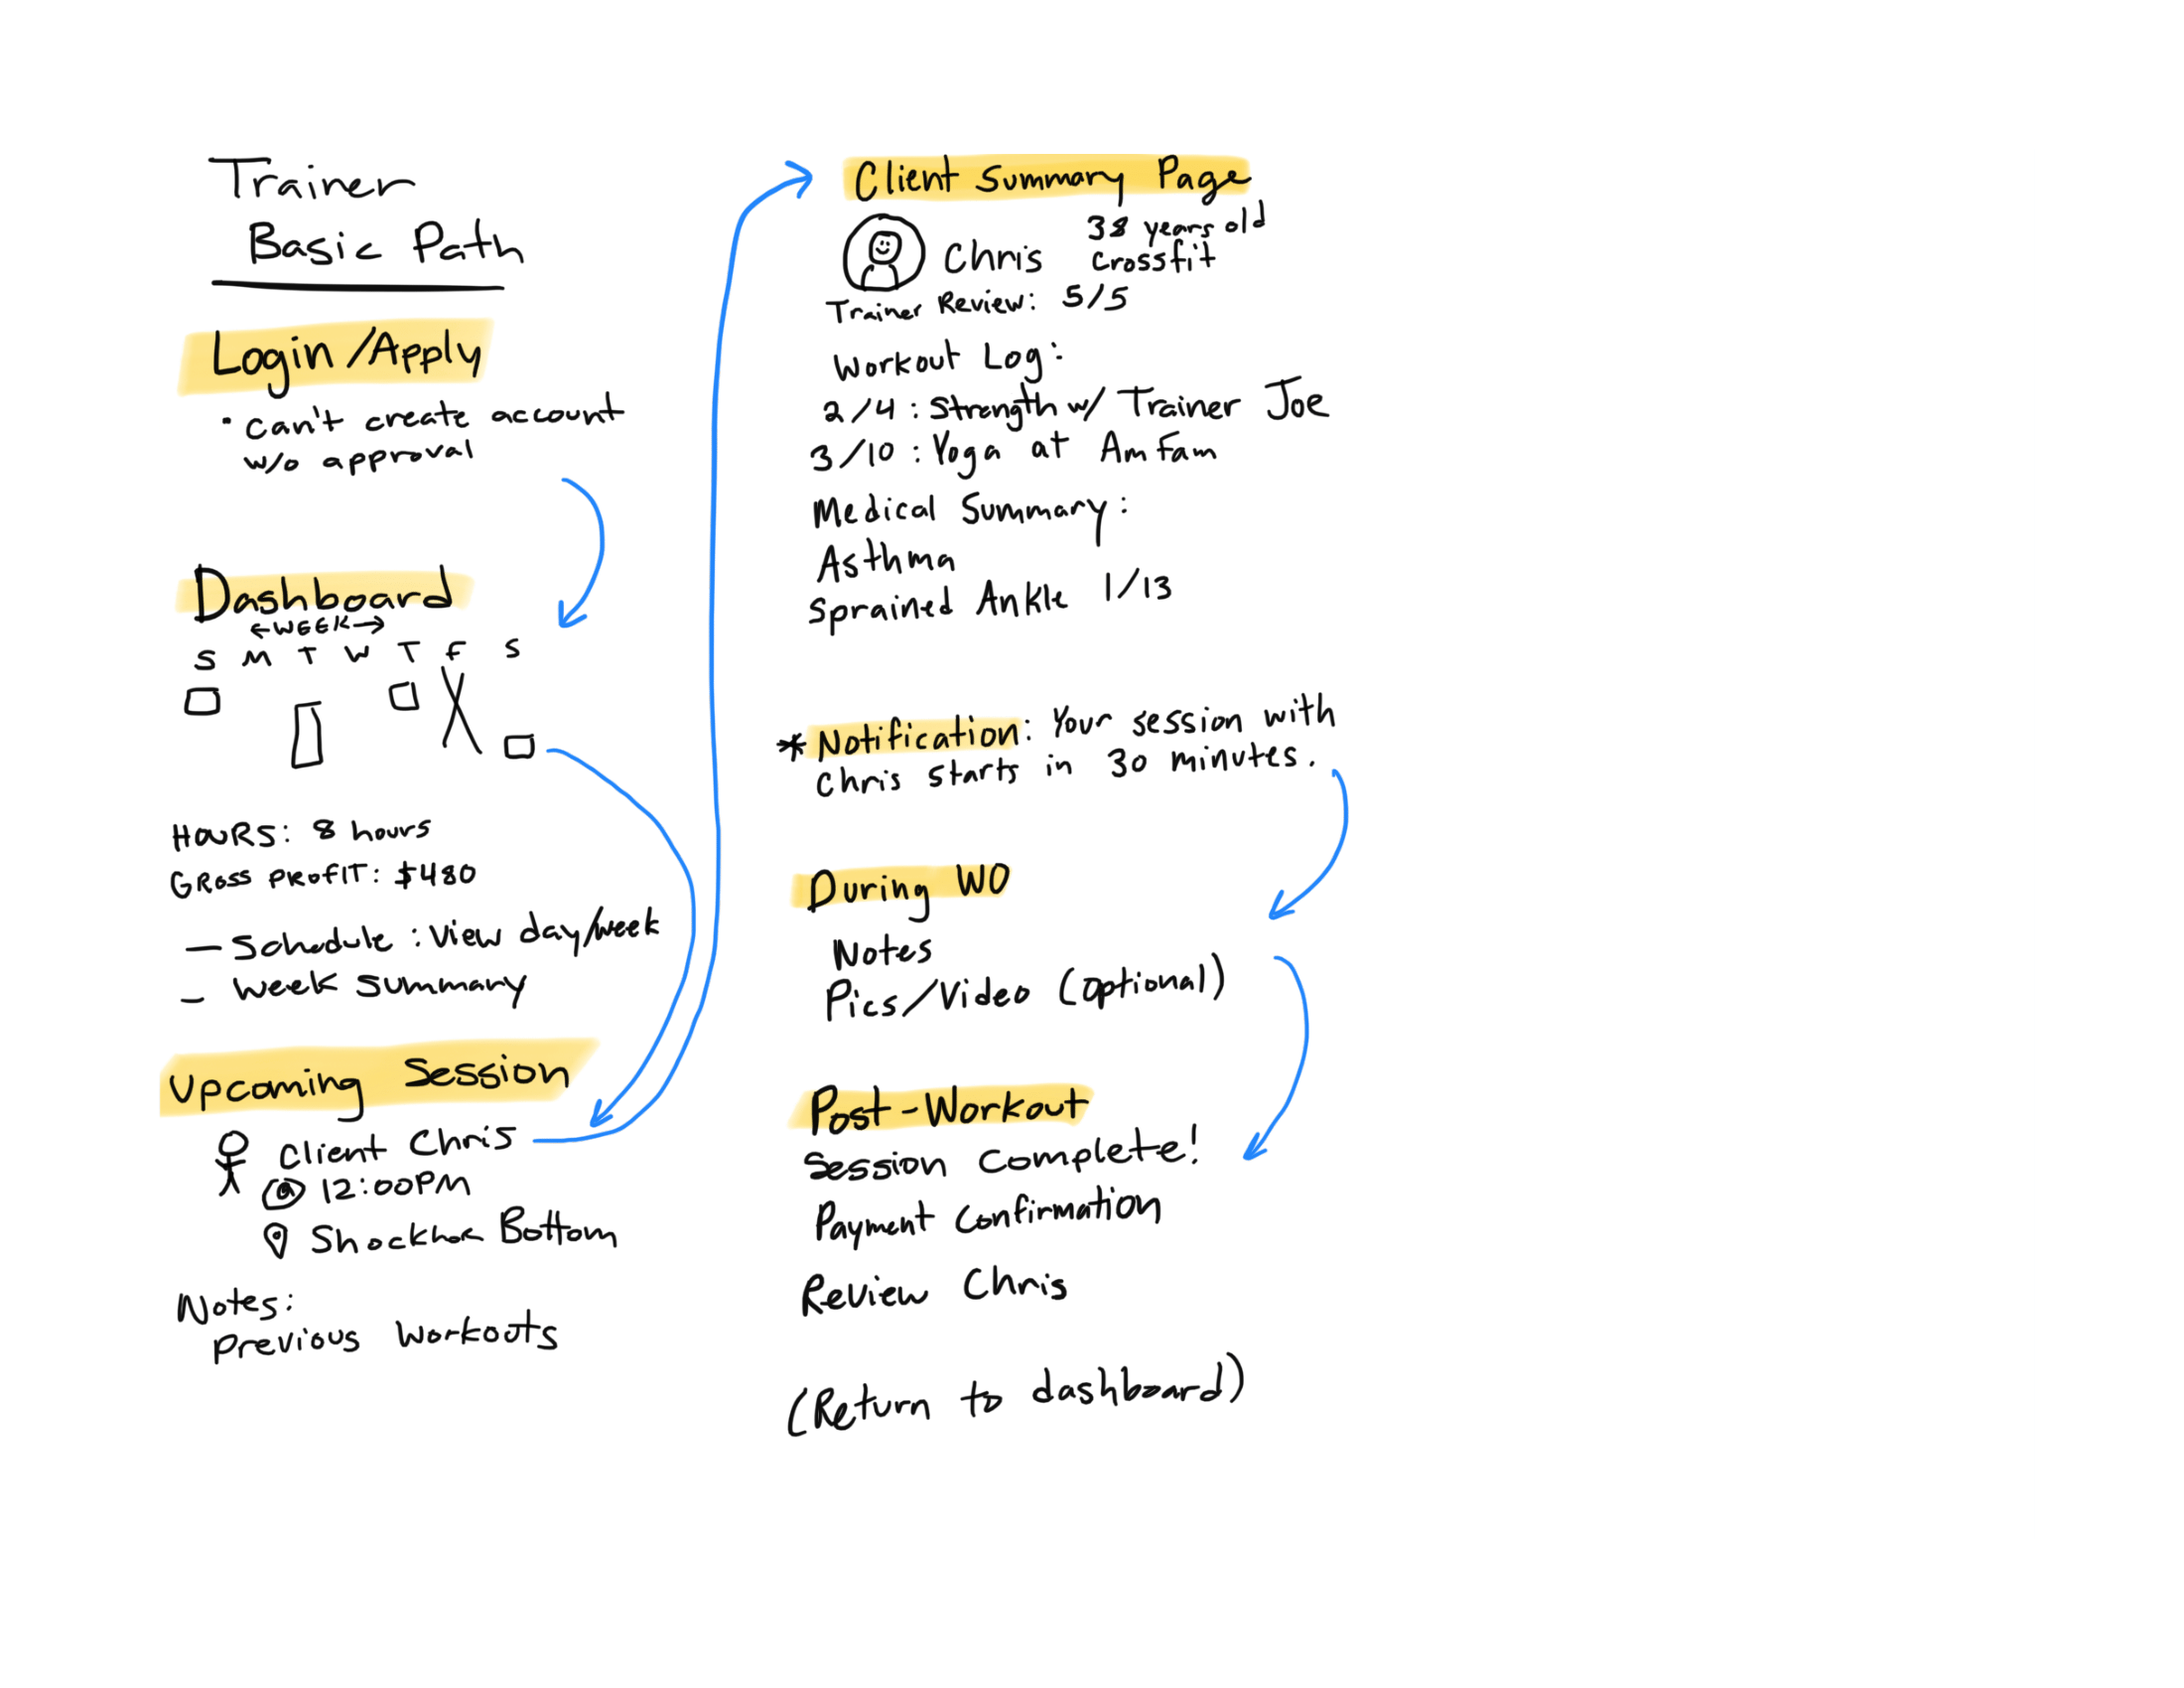 Trainer
Basic Path
Login/Apply
· can't create account
w/o approval
Dashboard
←WEEK→
S M T W T F S
HOURS: 8 hours
GROSS PROFIT: $480
— Schedule : View day/week
– Week summary
Upcoming Session
Client Chris
@ 12:00PM
Shockhoe Bottom
Notes:
previous workouts
Client Summary Page
38 years old
Chris crossfit
Trainer Review: 5/5
Workout Log:
2/4 : Strength w/ Trainer Joe
3/10 : Yoga at AmFam
Medical Summary:
Asthma
Sprained Ankle 1/13
* Notification: Your session with
Chris starts in 30 minutes.
During WO
Notes
Pics/Video (optional)
Post-Workout
Session Complete!
Payment Confirmation
Review Chris
(Return to dashboard)